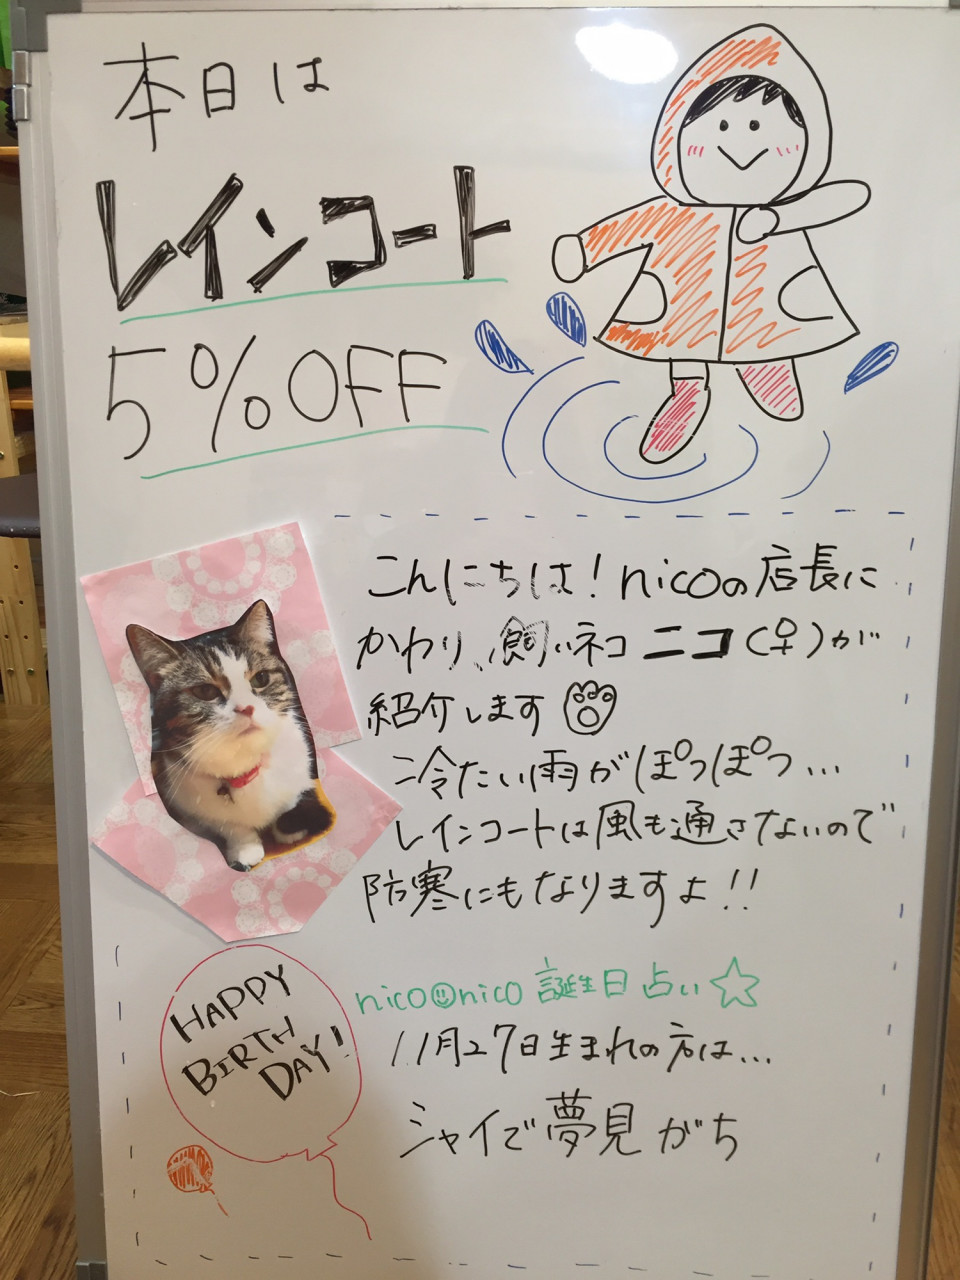 本日は
レインコート
5%OFF
こんにちは！nicoの店長に
かわり、飼いネコ ニコ（♀）が
紹介します
冷たい雨がぽつぽつ…
レインコートは風も通さないので
防寒にもなりますよ！！
HAPPY
BIRTH
DAY!
nico☺nico 誕生日占い☆
11月27日生まれの方は…
シャイで夢見がち